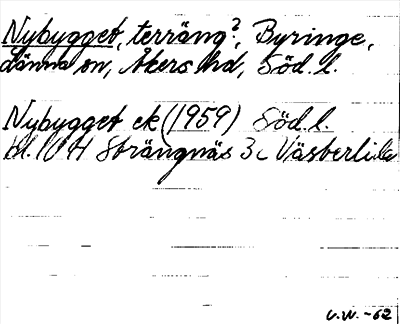 Nybygget, terräng?, Byringe,
Länna sn, Åkers hd, Söd. l.
Nybygget ek (1959) Söd. l.
bl. 10 H Strängnäs 3 c Västerlida
V.W. -62